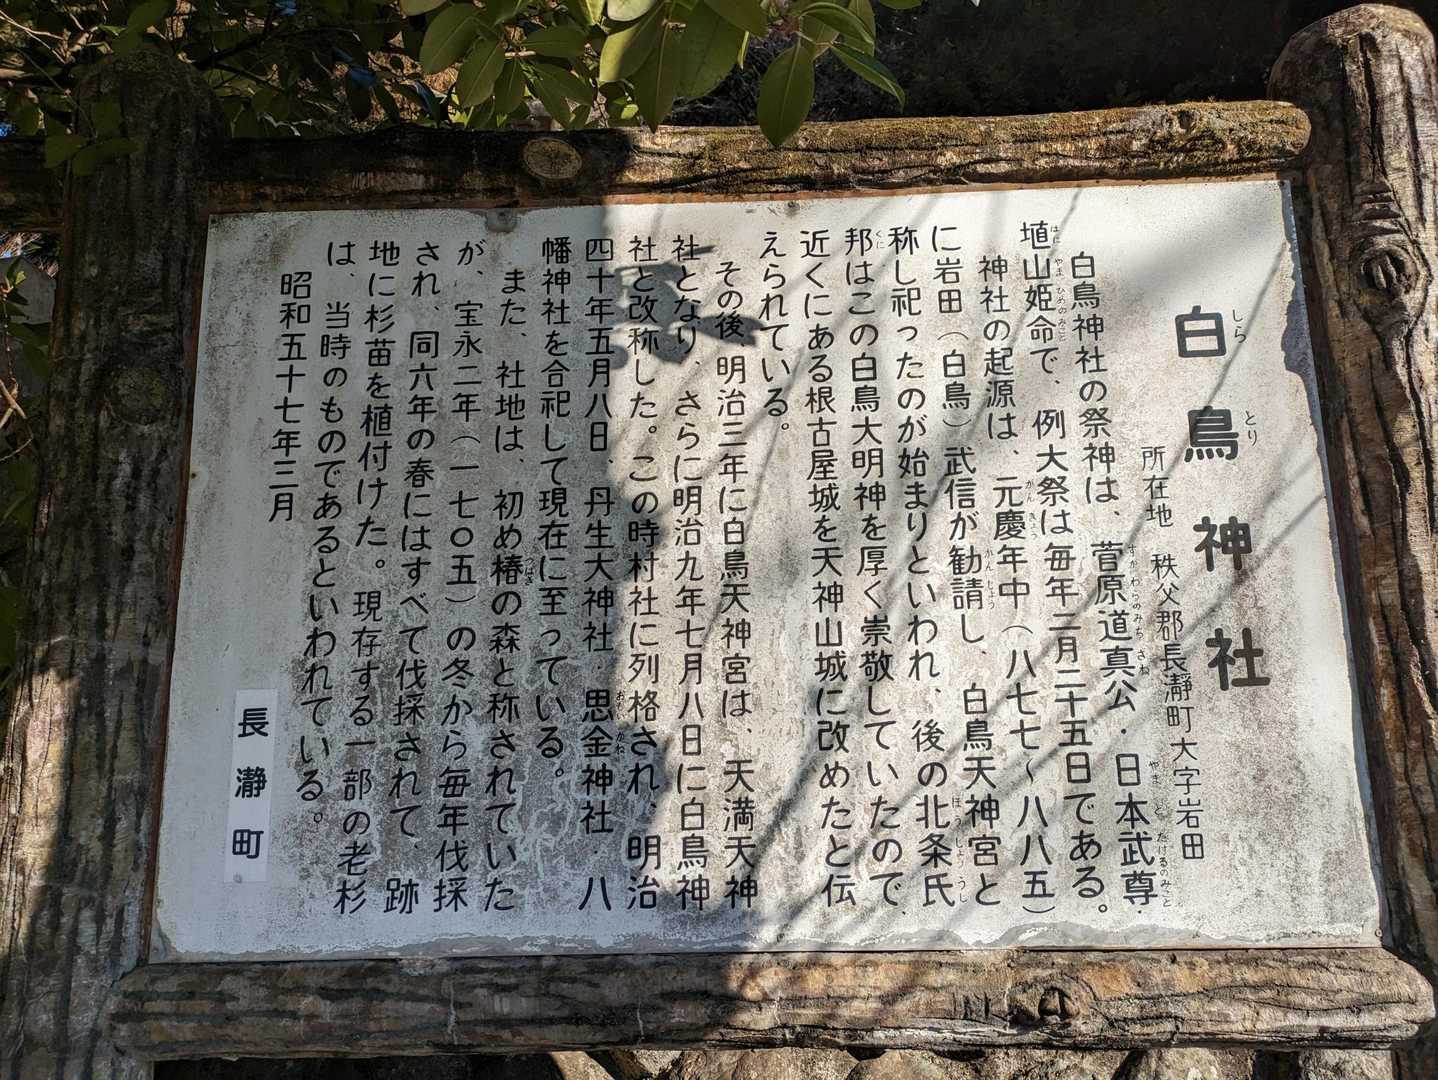 白鳥神社
しら とり
所在地 秩父郡長瀞町大字岩田
白鳥神社の祭神は、菅原道真公・日本武尊・
すがわらのみちざね やまとたけるのみこと
埴山姫命で、例大祭は毎年二月二十五日である。
はにやまひめのみこと
神社の起源は、元慶年中（八七七〜八八五）
がんぎょう
に岩田（白鳥）武信が勧請し、白鳥天神宮と
かんじょう
称し祀ったのが始まりといわれ、後の北条氏
ほうじょううじ
邦はこの白鳥大明神を厚く崇敬していたので、
くに
近くにある根古屋城を天神山城に改めたと伝
えられている。
その後、明治三年に白鳥天神宮は、天満天神
社となり、さらに明治九年七月八日に白鳥神
社と改称した。この時村社に列格され、明治
四十年五月八日、丹生大神社・思金神社・八
おもいかね
幡神社を合祀して現在に至っている。
また、社地は、初め椿の森と称されていた
つばき
が、宝永二年（一七〇五）の冬から毎年伐採
され、同六年の春にはすべて伐採されて、跡
地に杉苗を植付けた。現存する一部の老杉
は、当時のものであるといわれている。
昭和五十七年三月
長瀞町